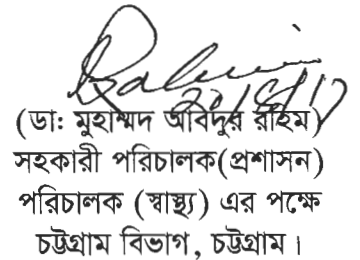 (ডা: মুহাম্মদ আবিদুর রহিম)
সহকারী পরিচালক(প্রশাসন)
পরিচালক (স্বাস্থ্য) এর পক্ষে
চট্টগ্রাম বিভাগ, চট্টগ্রাম।